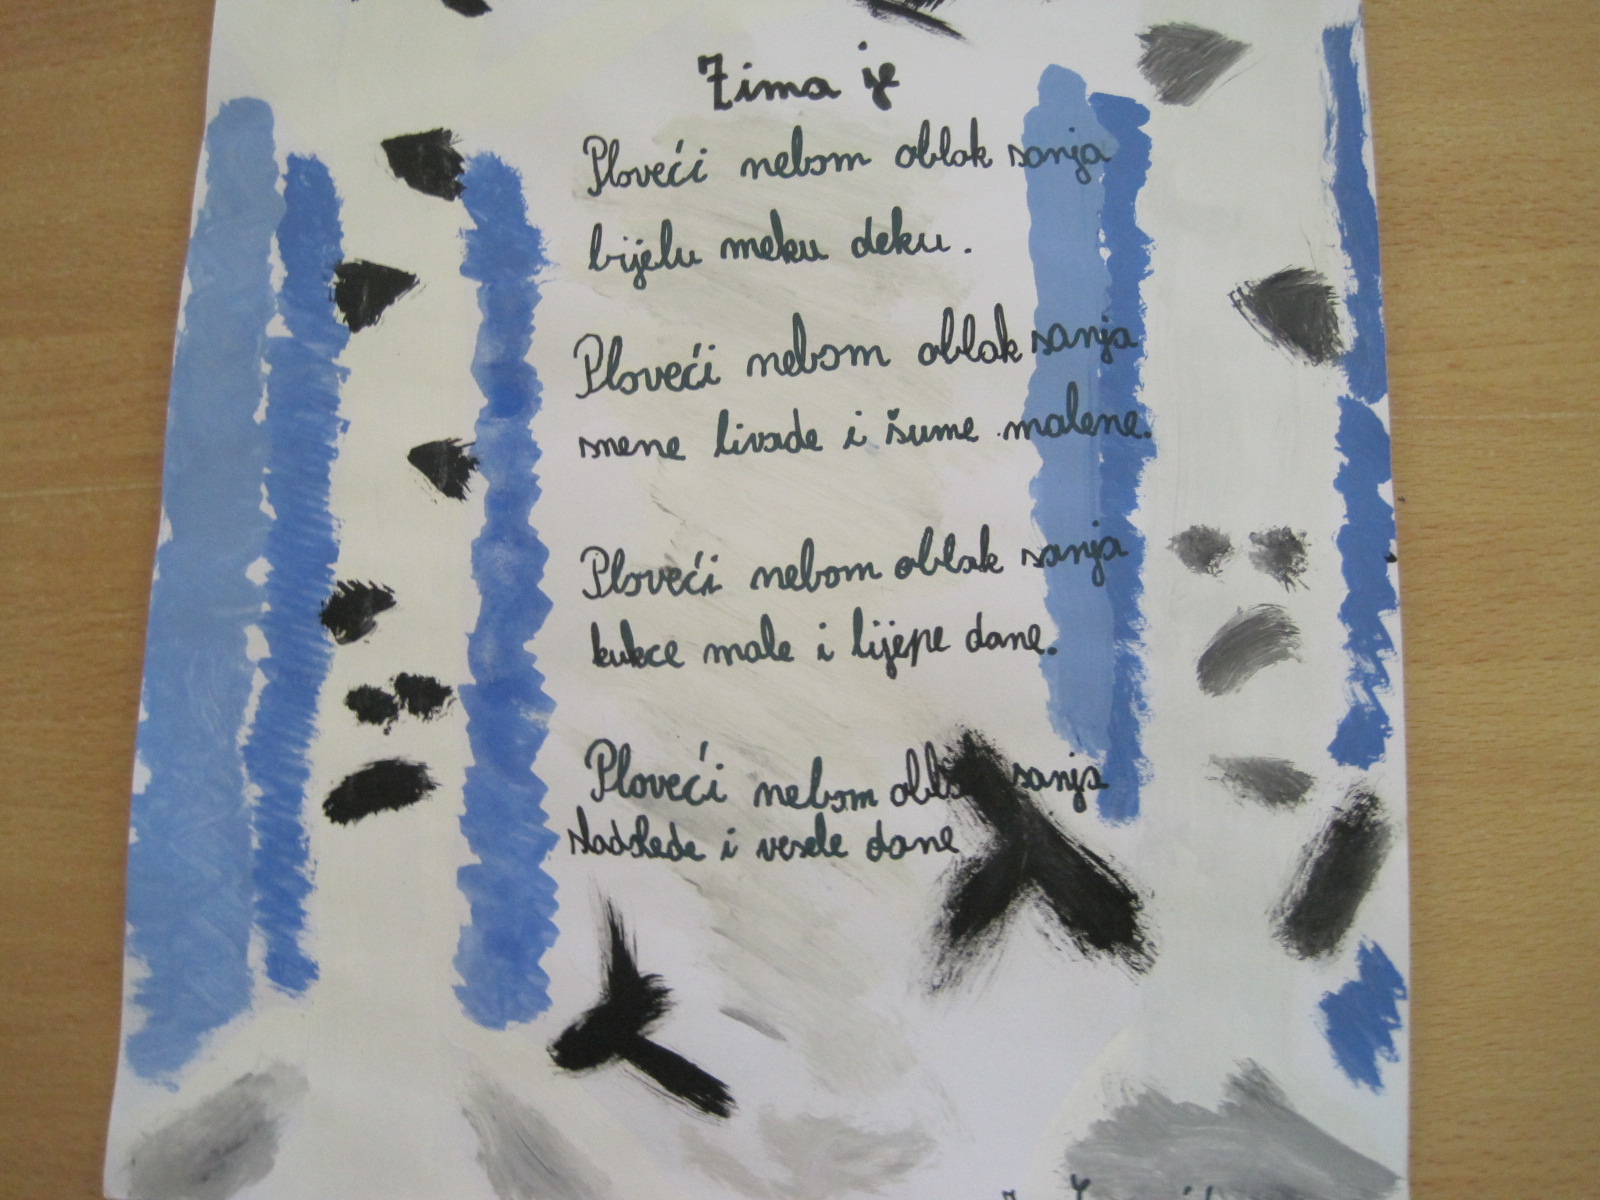 Zima je
Ploveći nebom oblak sanja
bijelu meku deku.
Ploveći nebom oblak sanja
snene livade i šume malene.
Ploveći nebom oblak sanja
kukce male i lijepe dane.
Ploveći nebom oblak sanja
sladolede i vesele dane